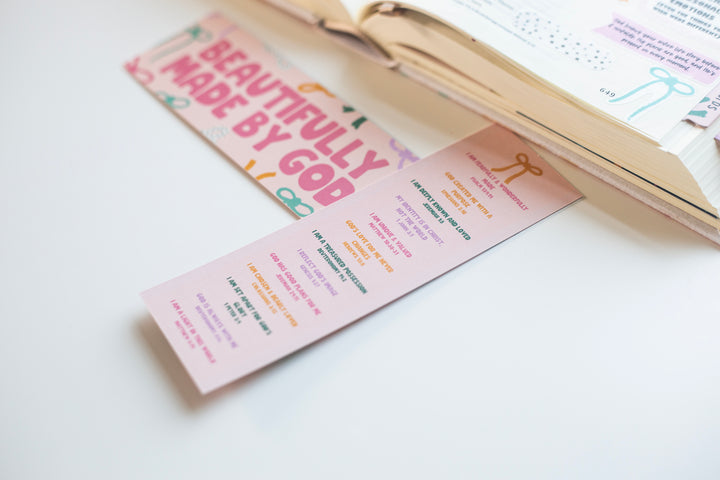 BEAUTIFULLY
MADE BY GOD
I AM FEARFULLY & WONDERFULLY
MADE
PSALM 139:14
GOD CREATED ME WITH A
PURPOSE
EPHESIANS 2:10
I AM DEEPLY KNOWN AND LOVED
JEREMIAH 1:5
MY IDENTITY IS IN CHRIST,
NOT THE WORLD
1 JOHN 3:1
I AM UNIQUE & VALUED
MATTHEW 10:29-31
GOD'S LOVE FOR ME NEVER
CHANGES
HEBREWS 13:8
I AM A TREASURED POSSESSION
DEUTERONOMY 14:2
I REFLECT GOD'S IMAGE
GENESIS 1:27
GOD HAS GOOD PLANS FOR ME
JEREMIAH 29:11
I AM CHOSEN & DEARLY LOVED
COLOSSIANS 3:12
I AM SET APART FOR GOD'S
GLORY
1 PETER 2:9
GOD IS ALWAYS WITH ME
DEUTERONOMY 31:6
I AM A LIGHT IN THIS WORLD
MATTHEW 5:14
649